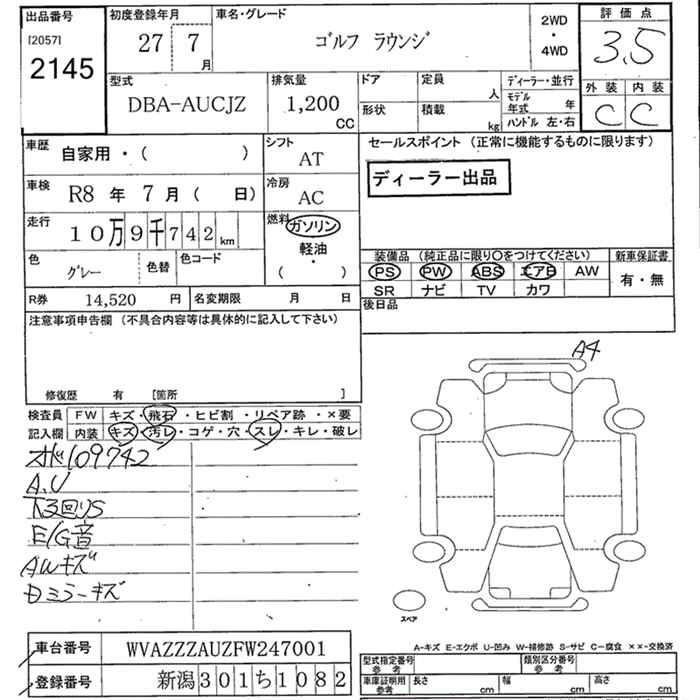 出品番号 初度登録年月 車名・グレード 2WD ・ 4WD 評価点
[2057]
2145 27 7月 ゴルフ ラウンジ 3.5
型式 排気量 ドア 定員 人 ディーラー・並行 外装 内装
DBA-AUCJZ 1,200 CC 形状 積載 kg モデル年式 年 C C
ハンドル 左・右
車歴 自家用・( ) シフト AT セールスポイント (正常に機能するものに限ります)
車検 R8 年 7 月 ( 日) 冷房 AC ディーラー出品
走行 10万9千742km 燃料 ガソリン
軽油・
( )
色 グレー 色替 色コード 装備品 (純正品に限り〇をつけてください) 新車保証書
PS PW ABS エアB AW 有・無
SR ナビ TV カワ
R券 14,520 円 名変期限 月 日 後日品
注意事項申告欄 (不具合内容等は具体的に記入して下さい)
修復歴 有 [箇所 ]
A4
検査員 FW キズ・飛石・ヒビ割・リペア跡・×要
記入欄 内装 キズ・汚レ・コゲ・穴・スレ・キレ・破レ
オド109742
A.U
下回りS
E/G音
AWキズ
Dミラーキズ
スペア
A-キズ E-エクボ U-凹み W-補修跡 S-サビ C-腐食 ××-交換済
車台番号 WVAZZZAUZFW247001
登録番号 新潟301ち1082
型式指定番号 参考 類別区分番号 参考
車庫証明用 参考 長さ cm 幅 cm 高さ cm